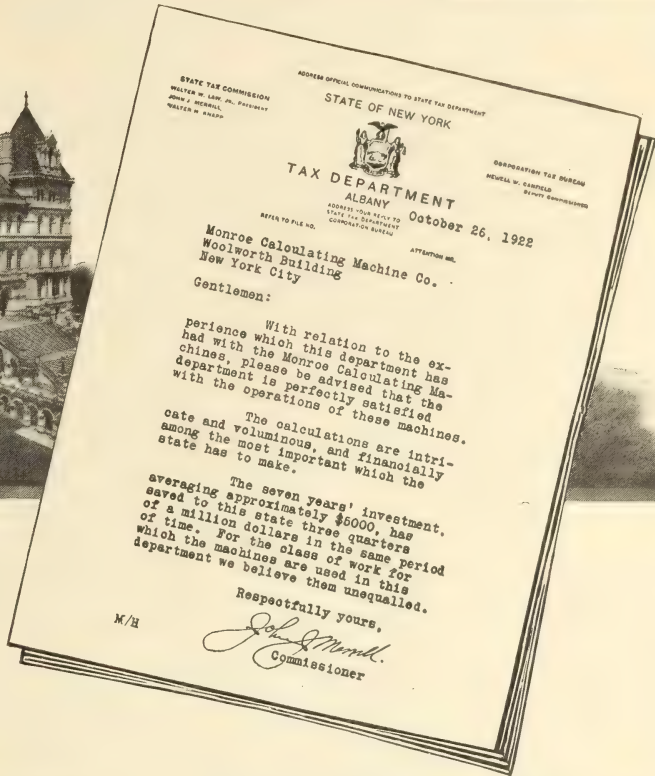 ADDRESS OFFICIAL COMMUNICATIONS TO STATE TAX DEPARTMENT
STATE TAX COMMISSION
WALTER W. LAW, JR., PRESIDENT
JOHN J. MERRILL
WALTER H. KNAPP
STATE OF NEW YORK
TAX DEPARTMENT
ALBANY
CORPORATION TAX BUREAU
NEWELL W. CANFIELD
DEPUTY COMMISSIONER
ADDRESS YOUR REPLY TO
STATE TAX DEPARTMENT
CORPORATION BUREAU
October 26, 1922
REFER TO FILE NO.
ATTENTION MR.
Monroe Calculating Machine Co.
Woolworth Building
New York City
Gentlemen:
With relation to the ex-
perience which this department has
had with the Monroe Calculating Ma-
chines, please be advised that the
department is perfectly satisfied
with the operations of these machines.
The calculations are intri-
cate and voluminous, and financially
among the most important which the
state has to make.
The seven years' investment,
averaging approximately $5000, has
saved to this state three quarters
of a million dollars in the same period
of time. For the class of work for
which the machines are used in this
department we believe them unequalled.
Respectfully yours,
John J. Merrill.
Commissioner
M/H